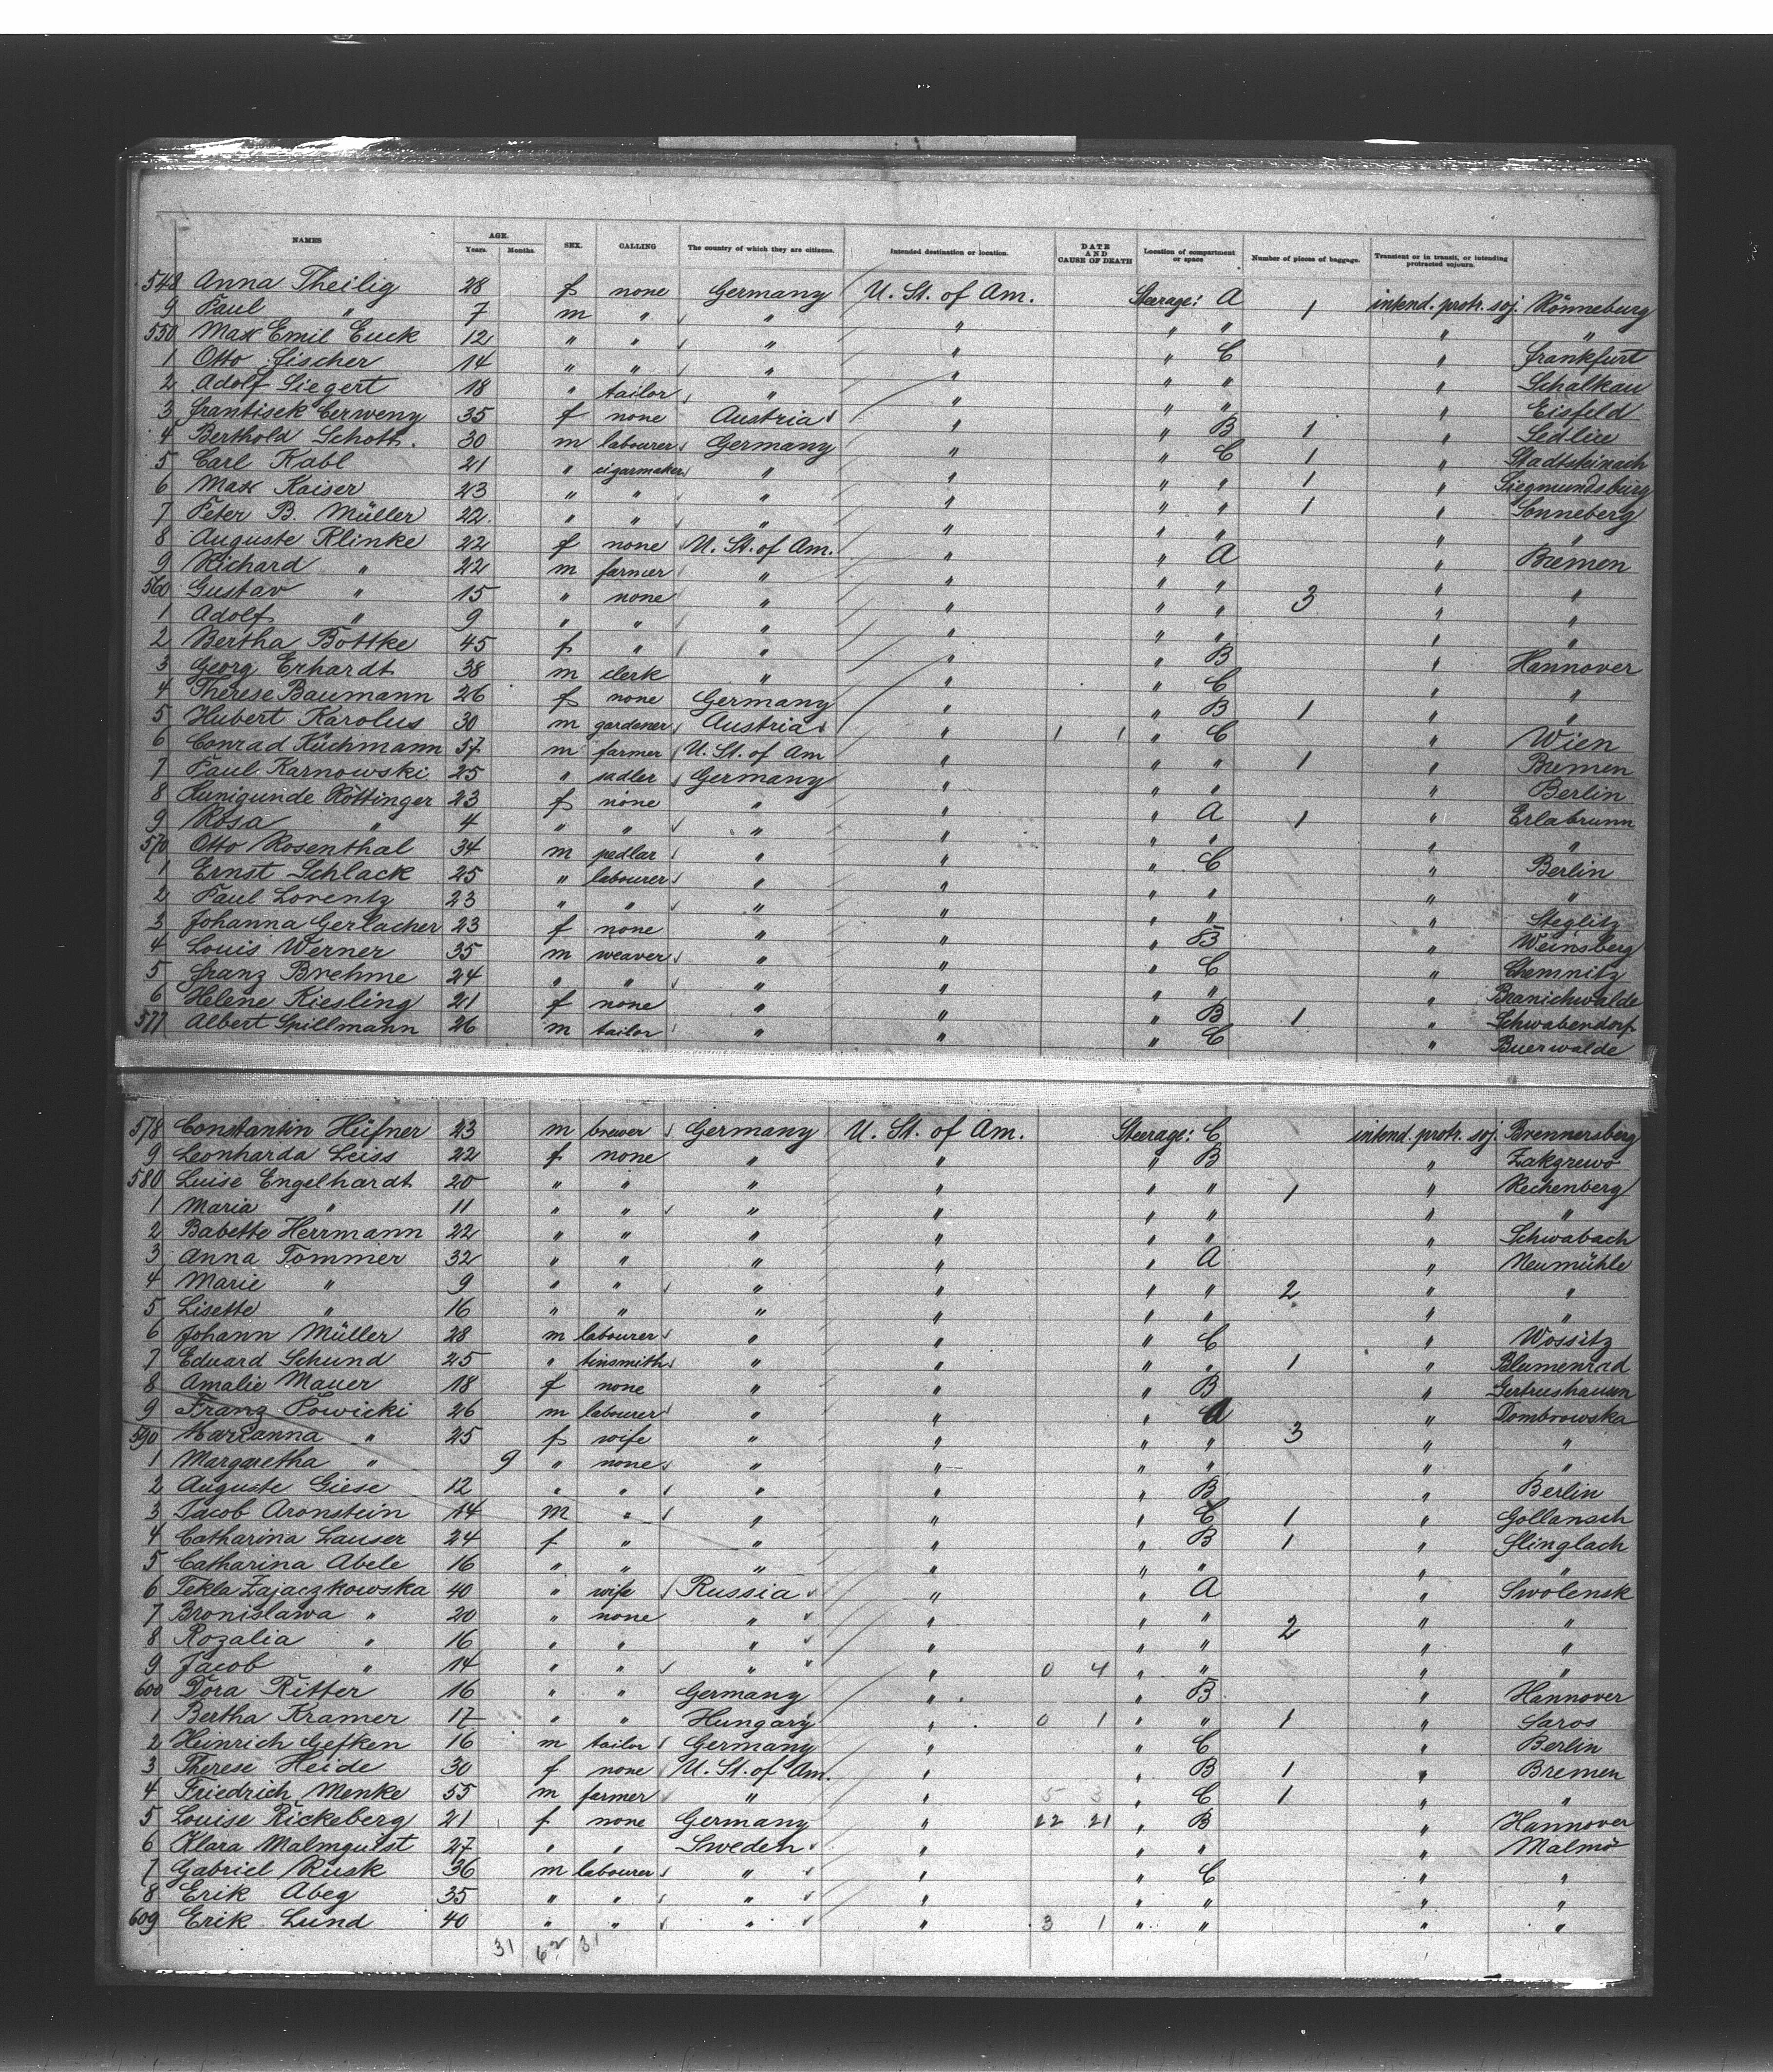 NAMES AGE. Years. Months. SEX. CALLING The country of which they are citizens. Intended destination or location. DATE AND CAUSE OF DEATH Location of compartment or space Number of pieces of baggage. Transient or in transit, or intending protracted sojourn.
548 Anna Theilig 28 f none Germany U. St. of Am. Steerage: A 1 intend. protr. soj. Rönneburg
9 Paul " 7 m " " " " " " "
550 Max Emil Euck 12 " " " " " C " Frankfurt
1 Otto Fischer 14 " " " " " " " Schalkau
2 Adolf Siegert 18 " tailor " " " " " Eisfeld
3 Frantisek Cerweny 35 f none Austria " " B 1 " Sedlice
4 Berthold Schott. 30 m labourer Germany " " C 1 " Stadtsteinach
5 Carl Kabl 21 " cigarmaker " " " " 1 " Siegmundsburg
6 Max Kaiser 23 " " " " " " 1 " Sonneberg
7 Peter B. Müller 22 " " " " " " " "
8 Auguste Klinke 22 f none U. St. of Am. " " A " Bremen
9 Richard " 22 m farmer " " " " " "
560 Gustav " 15 " none " " " " 3 " "
1 Adolf " 9 " " " " " " " "
2 Bertha Bottke 45 f " " " " B " Hannover
3 Georg Erhardt 38 m clerk " " " C " "
4 Therese Baumann 26 f none Germany " " B 1 " "
5 Hubert Karolus 30 m gardener Austria " 1 1 " C " Wien
6 Conrad Kuchmann 57 m farmer U. St. of Am " " " 1 " Bremen
7 Paul Karnowski 25 " sadler Germany " " " " Berlin
8 Kunigunde Röttinger 23 f none " " " A 1 " Erlabrunn
9 Rosa " 4 " " " " " " " "
570 Otto Rosenthal 34 m pedlar " " " C " Berlin
1 Ernst Schlack 25 " labourer " " " " " "
2 Paul Lorentz 23 " " " " " " " Steglitz
3 Johanna Gerlacher 23 f none " " " B " Weinsberg
4 Louis Werner 35 m weaver " " " C " Chemnitz
5 Franz Brehme 24 " " " " " " " Branichwalde
6 Helene Kiesling 21 f none " " " B 1 " Schwabendorf
577 Albert Spillmann 26 m tailor " " " C " Buerwalde
578 Constantin Hüfner 23 m brewer Germany U. St. of Am. Steerage: C intend. protr. soj. Brennersberg
9 Leonharda Leiss 22 f none " " " B " Zakgrewo
580 Luise Engelhardt 20 " " " " " " 1 " Rechenberg
1 Maria " 11 " " " " " " " "
2 Babette Herrmann 22 " " " " " " " Schwabach
3 Anna Tommer 32 " " " " " A " Neumühle
4 Marie " 9 " " " " " " 2 " "
5 Lisette " 16 " " " " " " " "
6 Johann Müller 28 m labourer " " " C " Wossitz
7 Eduard Schund 25 " tinsmith " " " " 1 " Blumenrad
8 Amalie Mauer 18 f none " " " B " Gertrushausen
9 Franz Powicki 26 m labourer " " " A " Dombrowska
590 Marianna " 25 f wife " " " " 3 " "
1 Margaretha " 9 " none " " " " " "
2 Auguste Giese 12 " " " " " B " Berlin
3 Jacob Aronstein 14 m " " " " C 1 " Gollansch
4 Catharina Lauser 24 f " " " " B 1 " Flinglach
5 Catharina Abele 16 " " " " " " " "
6 Tekla Zajaczkowska 40 " wife Russia " " A " Swolensk
7 Bronislawa " 20 " none " " " " 2 " "
8 Rozalia " 16 " " " " " " " "
9 Jacob " 14 " " " " 0 4 " " " "
600 Dora Ritter 16 " " Germany " " B " Hannover
1 Bertha Kramer 17 " " Hungary " 0 1 " " 1 " Saros
2 Heinrich Gefken 16 m tailor Germany " " C " Berlin
3 Therese Heide 30 f none U. St. of Am. " " B 1 " Bremen
4 Friedrich Menke 55 m farmer " " 5 3 " C 1 " "
5 Louise Rickeberg 21 f none Germany " 22 21 " B " Hannover
6 Klara Malmquist 27 " " Sweden " " " " Malmö
7 Gabriel Rusk 36 m labourer " " " C " "
8 Erik Abeg 35 " " " " " " " "
609 Erik Lund 40 " " " " 3 1 " " " "
31 62 31